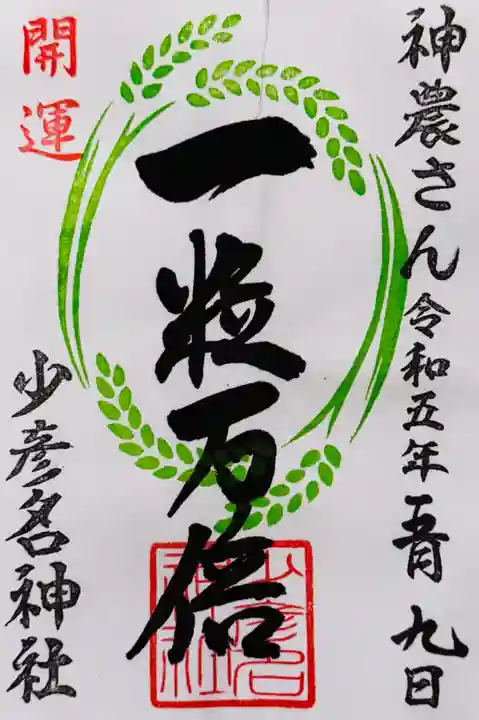 神農さん 令和五年五月九日
一粒万倍
開運
少彦名神社
少彦名神社